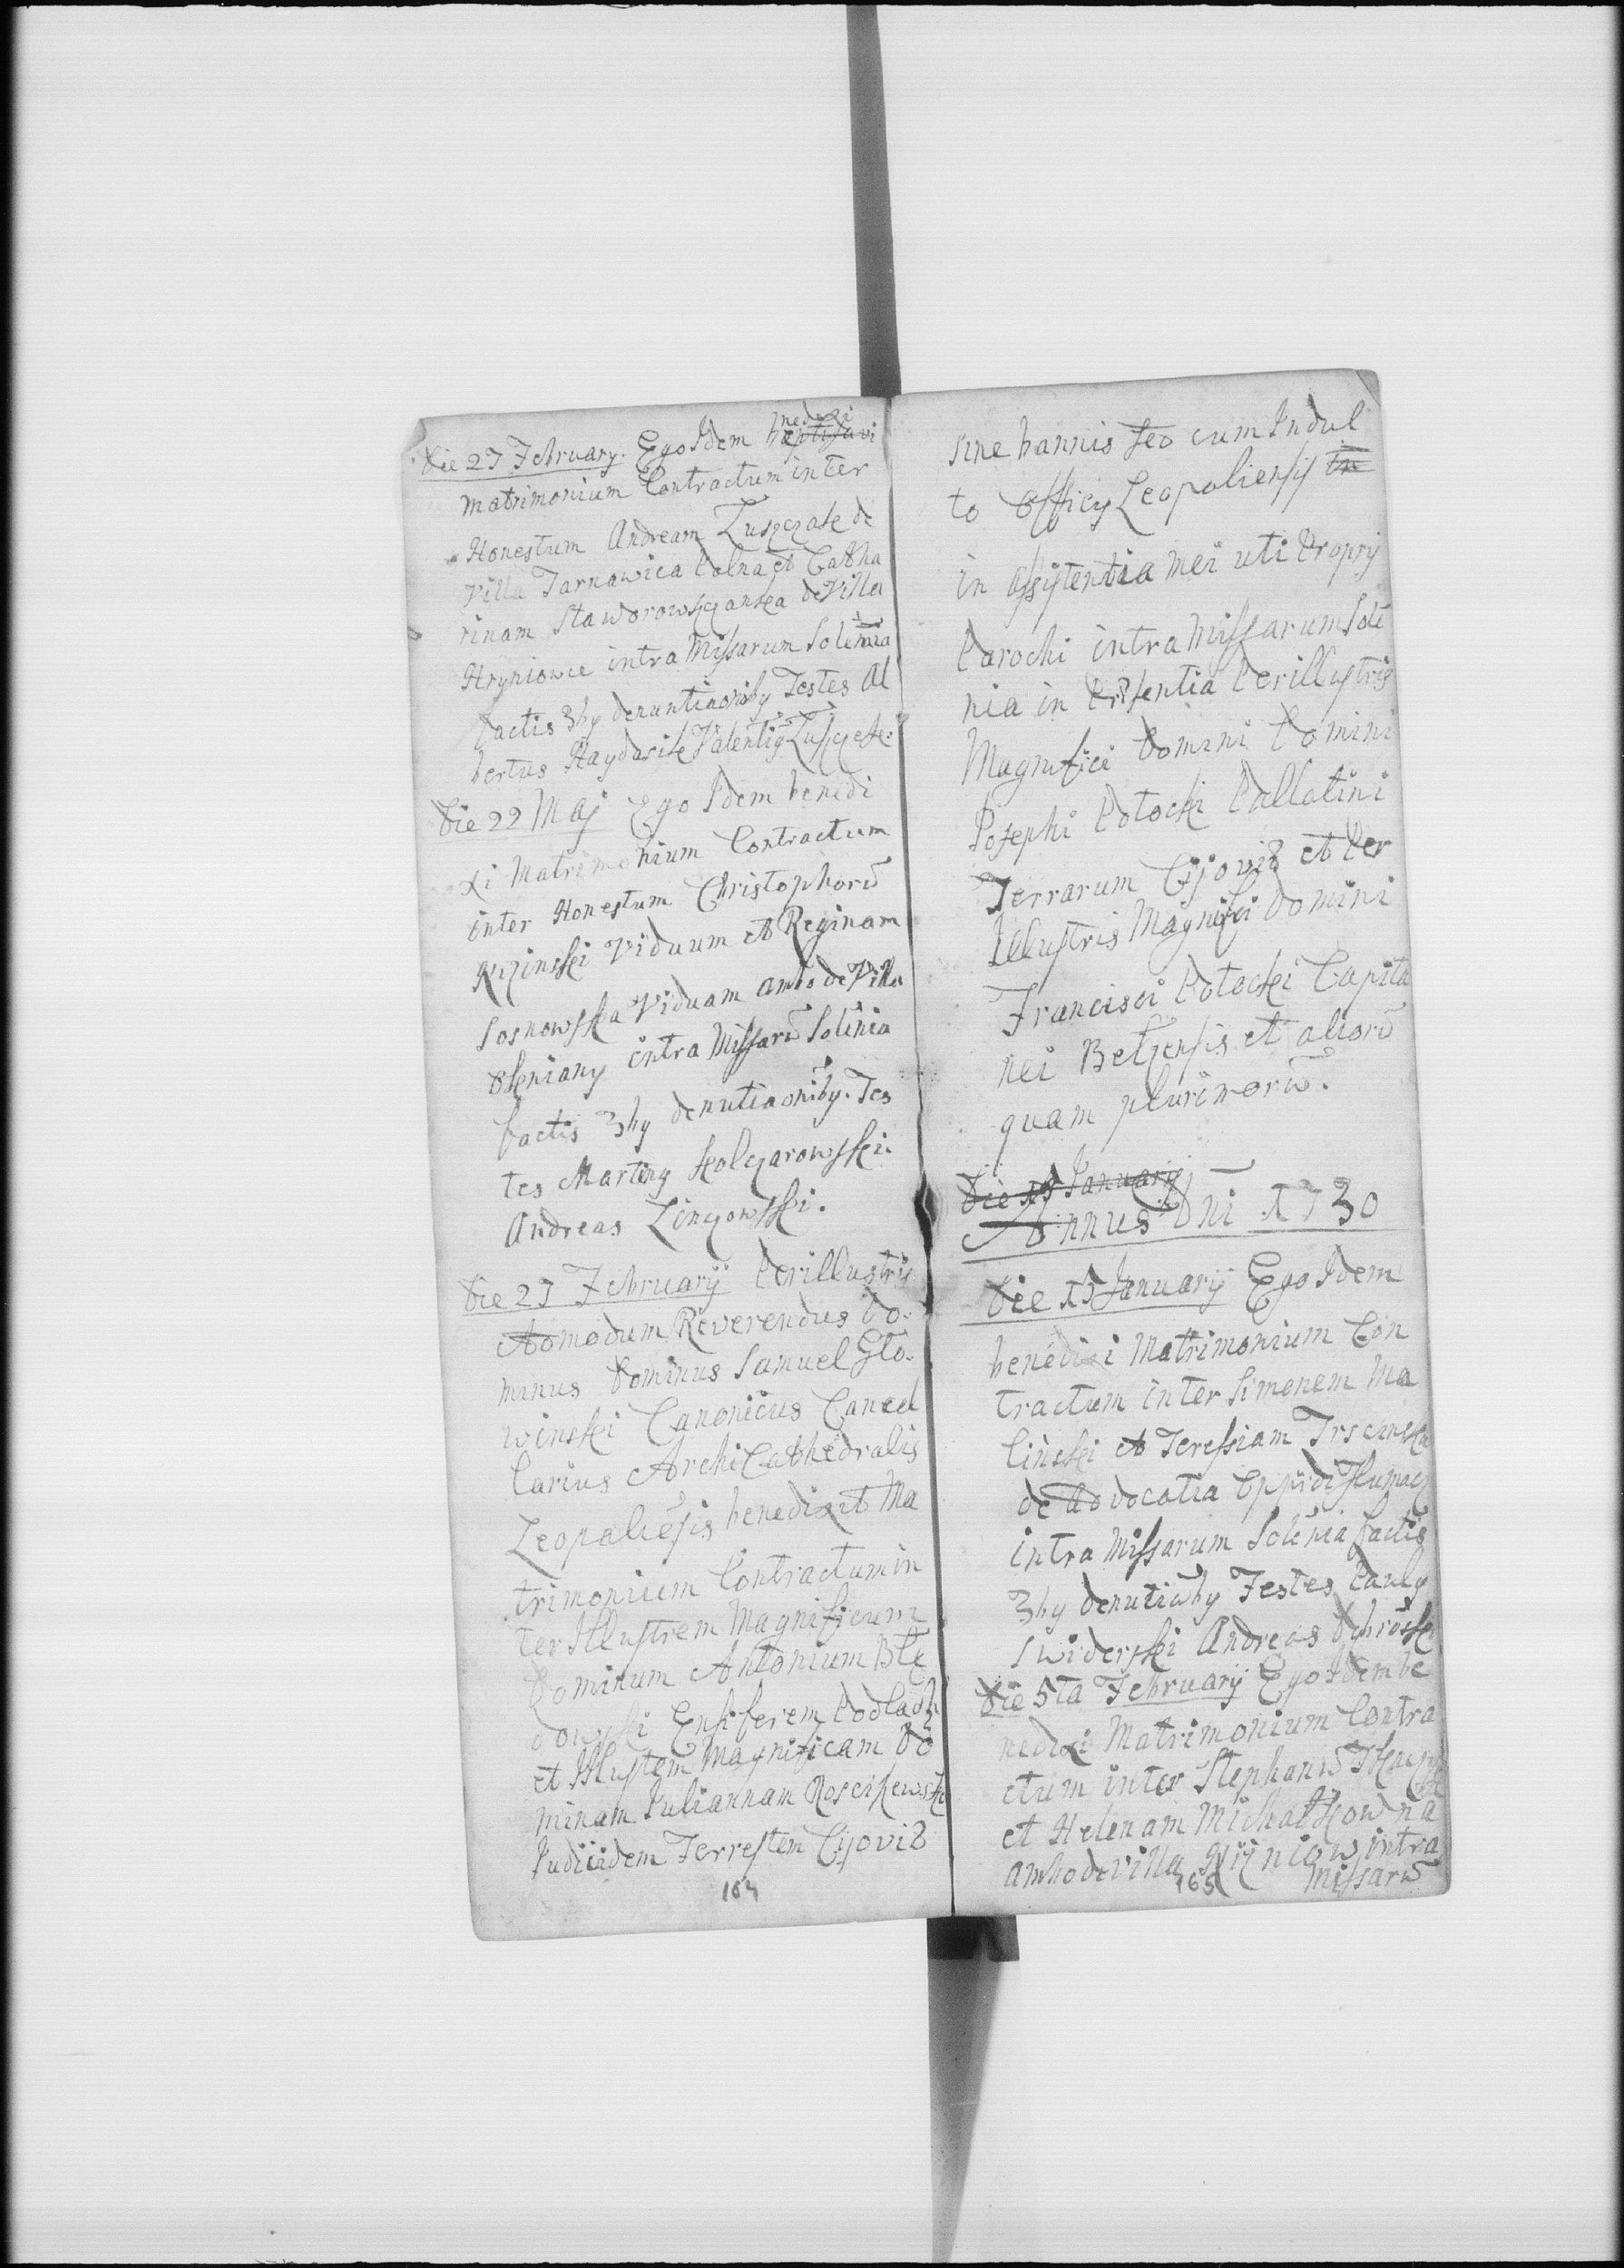 Die 27 February. Ego Idem benedixi baptisavi
matrimonium Contractum inter
Honestum Andream Łuszczak de
Villa Tarnawica Polna et Catha
rinam Staworowszczanka de Villa
Hryniowce intra Missarum Solēnia
factis 3bg denuntiaonibg Testes Al
bertus Haydasik Valentig Łuszczek.
Die 22 Maj Ego Idem benedi
xi Matrimonium Contractum
inter Honestum Christophorū
Viduum et Reginam
Sosnowska Viduam ambo de Villa
Oleniany intra Missarū Solēnia
factis 3bg denutiaonibg. Tes
tes Marting Kolczarowski
Andreas
Die 27 Februarij Perillustris
Admodum Reverendus Do.
minus Dominus Samuel Gło.
winski Canonicus Cancel
larius Archi Cathedralis
Leopoliēsis benedixit Ma
trimonium Contractum in
ter Illustrem Magnificum
Dominum Antonium Błę
dowski Ensiferem Podlach
et Illustem Magnificam Do
minam Juliannam Rosciszewsk
Judicidem Terrestem Cijoviē
164
sine bannis seo cum Indul
to Officij Leopoliensis in
in Assistentia mei uti Proprij
Parochi intra Missarum Solē
nia in Prsentia Perillustris
Magnifici Domini Domini
Josephi Potocki Pallatini
Terrarum Cijoviē et Per
Illustris Magnifici Domini
Francisci Potocki Capita
nei Betzensis et aliorū
quam plurimorū.
Die 15 Januarij
Annus Dni 1730
Die 15 Januarij Ego Idem
benedixi Matrimonium Con
tractum inter Simonem Ma
linski et Teressiam Trscinska
de Advocatia Oppidi Tlumacz
intra Missarum Solēnia factis
3bg denutiaōbg Testes Paulg
Swiderski Andreas
Die 5ta Februarij Ego Idem be
nedixi Matrimonium Contra
ctum inter Stephanū
et Helenam Michałkowna
ambo de villa intra
165 Missarū